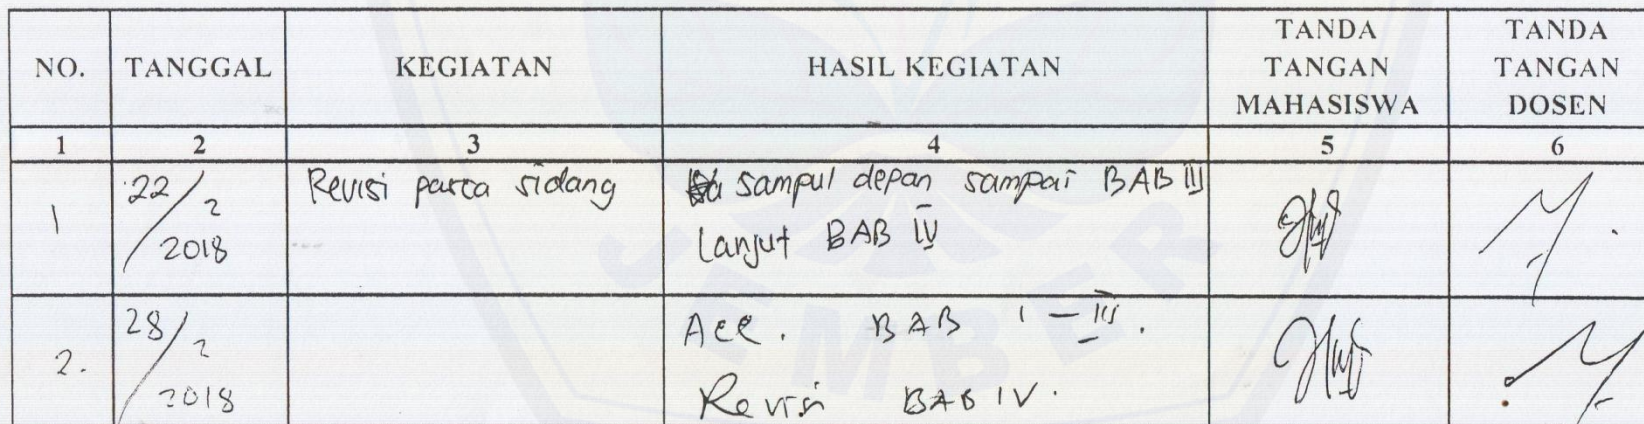 NO. TANGGAL KEGIATAN HASIL KEGIATAN TANDA TANGAN MAHASISWA TANDA TANGAN DOSEN
1 2 3 4 5 6
1 22/2 2018 Revisi pasca sidang sampul depan sampai BAB III
Lanjut BAB IV
2. 28/2 2018 Acc. BAB I - III.
Revisi BAB IV.
JEMBER